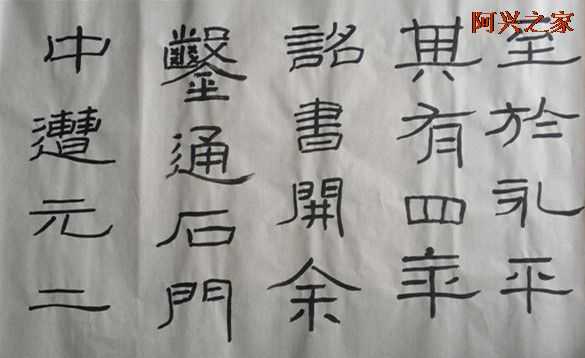 阿兴之家
至於永平
其有四年
詔書開余
鑿通石門
中遭元二